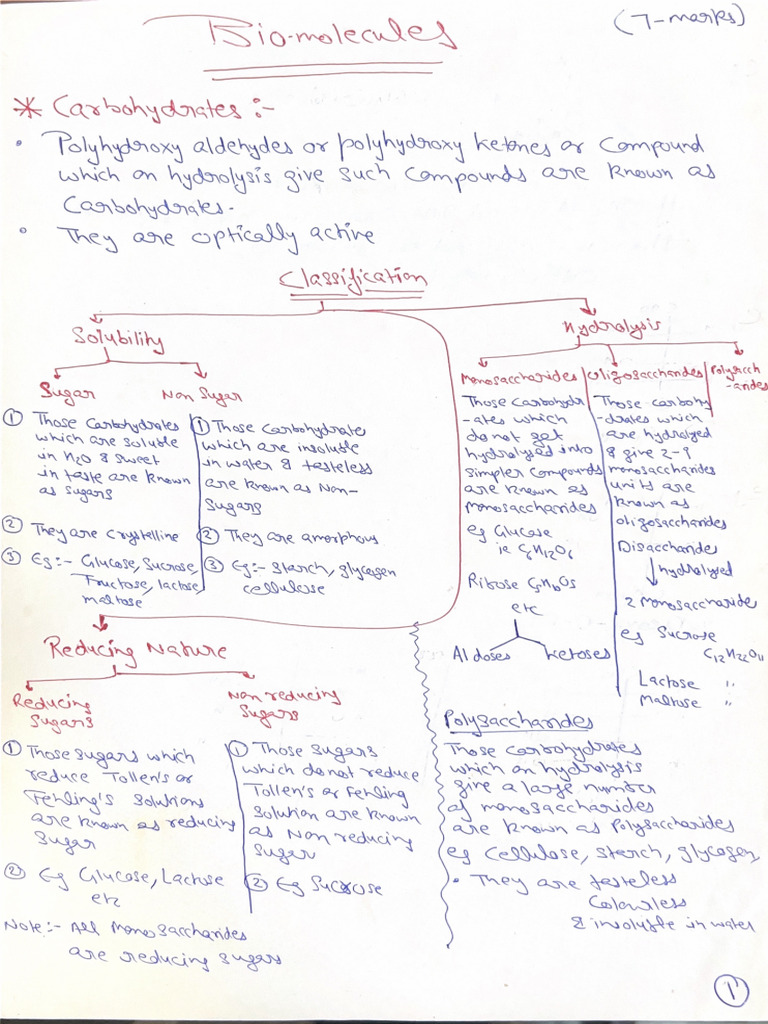 Bio-molecules
(7-marks)
* Carbohydrates :-
• Polyhydroxy aldehydes or polyhydroxy ketones or Compound
which on hydrolysis give such compounds are known as
Carbohydrates.
• They are optically active
Classification
Solubility
Sugar
Non Sugar
① Those Carbohydrates
which are soluble
in H2O & sweet
in taste are known
as sugars
② They are crystelline
③ Eg:- Glucose, Sucrose,
Fructose, lactose,
maltose
① Those Carbohydrate
which are insoluble
in water & tasteless
are known as Non-
Sugars
② They are amorphous
③ Eg:- Starch, glycogen
cellulose
Hydrolysis
Monosaccharides
Oligosaccharides
Polysacch
-arides
Those Carbohydr
-ates which
do not get
hydrolysed into
simpler compounds
are known as
monosaccharides
eg Glucose
ie C6H12O6
Ribose C5H10O5
etc
Aldoses
Ketoses
Those carbohy
-drates which
are hydrolyed
& give 2-9
monosaccharides
units are
known as
oligosaccharides
Disaccharide
hydrolysed
2 monosaccharide
eg Sucrose
C12H22O11
Lactose "
Maltose "
Reducing Nature
Reducing
Sugars
Non reducing
Sugars
① Those sugars which
reduce Tollen's or
Fehling's solutions
are known as reducing
sugar
② Eg Glucose, Lactose
etc
Note:- All Monosaccharides
are reducing sugars
① Those sugars
which do not reduce
Tollen's or Fehling
solution are known
as Non reducing
sugar
② Eg Sucrose
Polysaccharides
Those Carbohydrates
which on hydrolysis
give a large number
of monosaccharides
are known as Polysaccharides
eg Cellulose, starch, glycogen,
• They are tasteless
Colourless
& insoluble in water
1